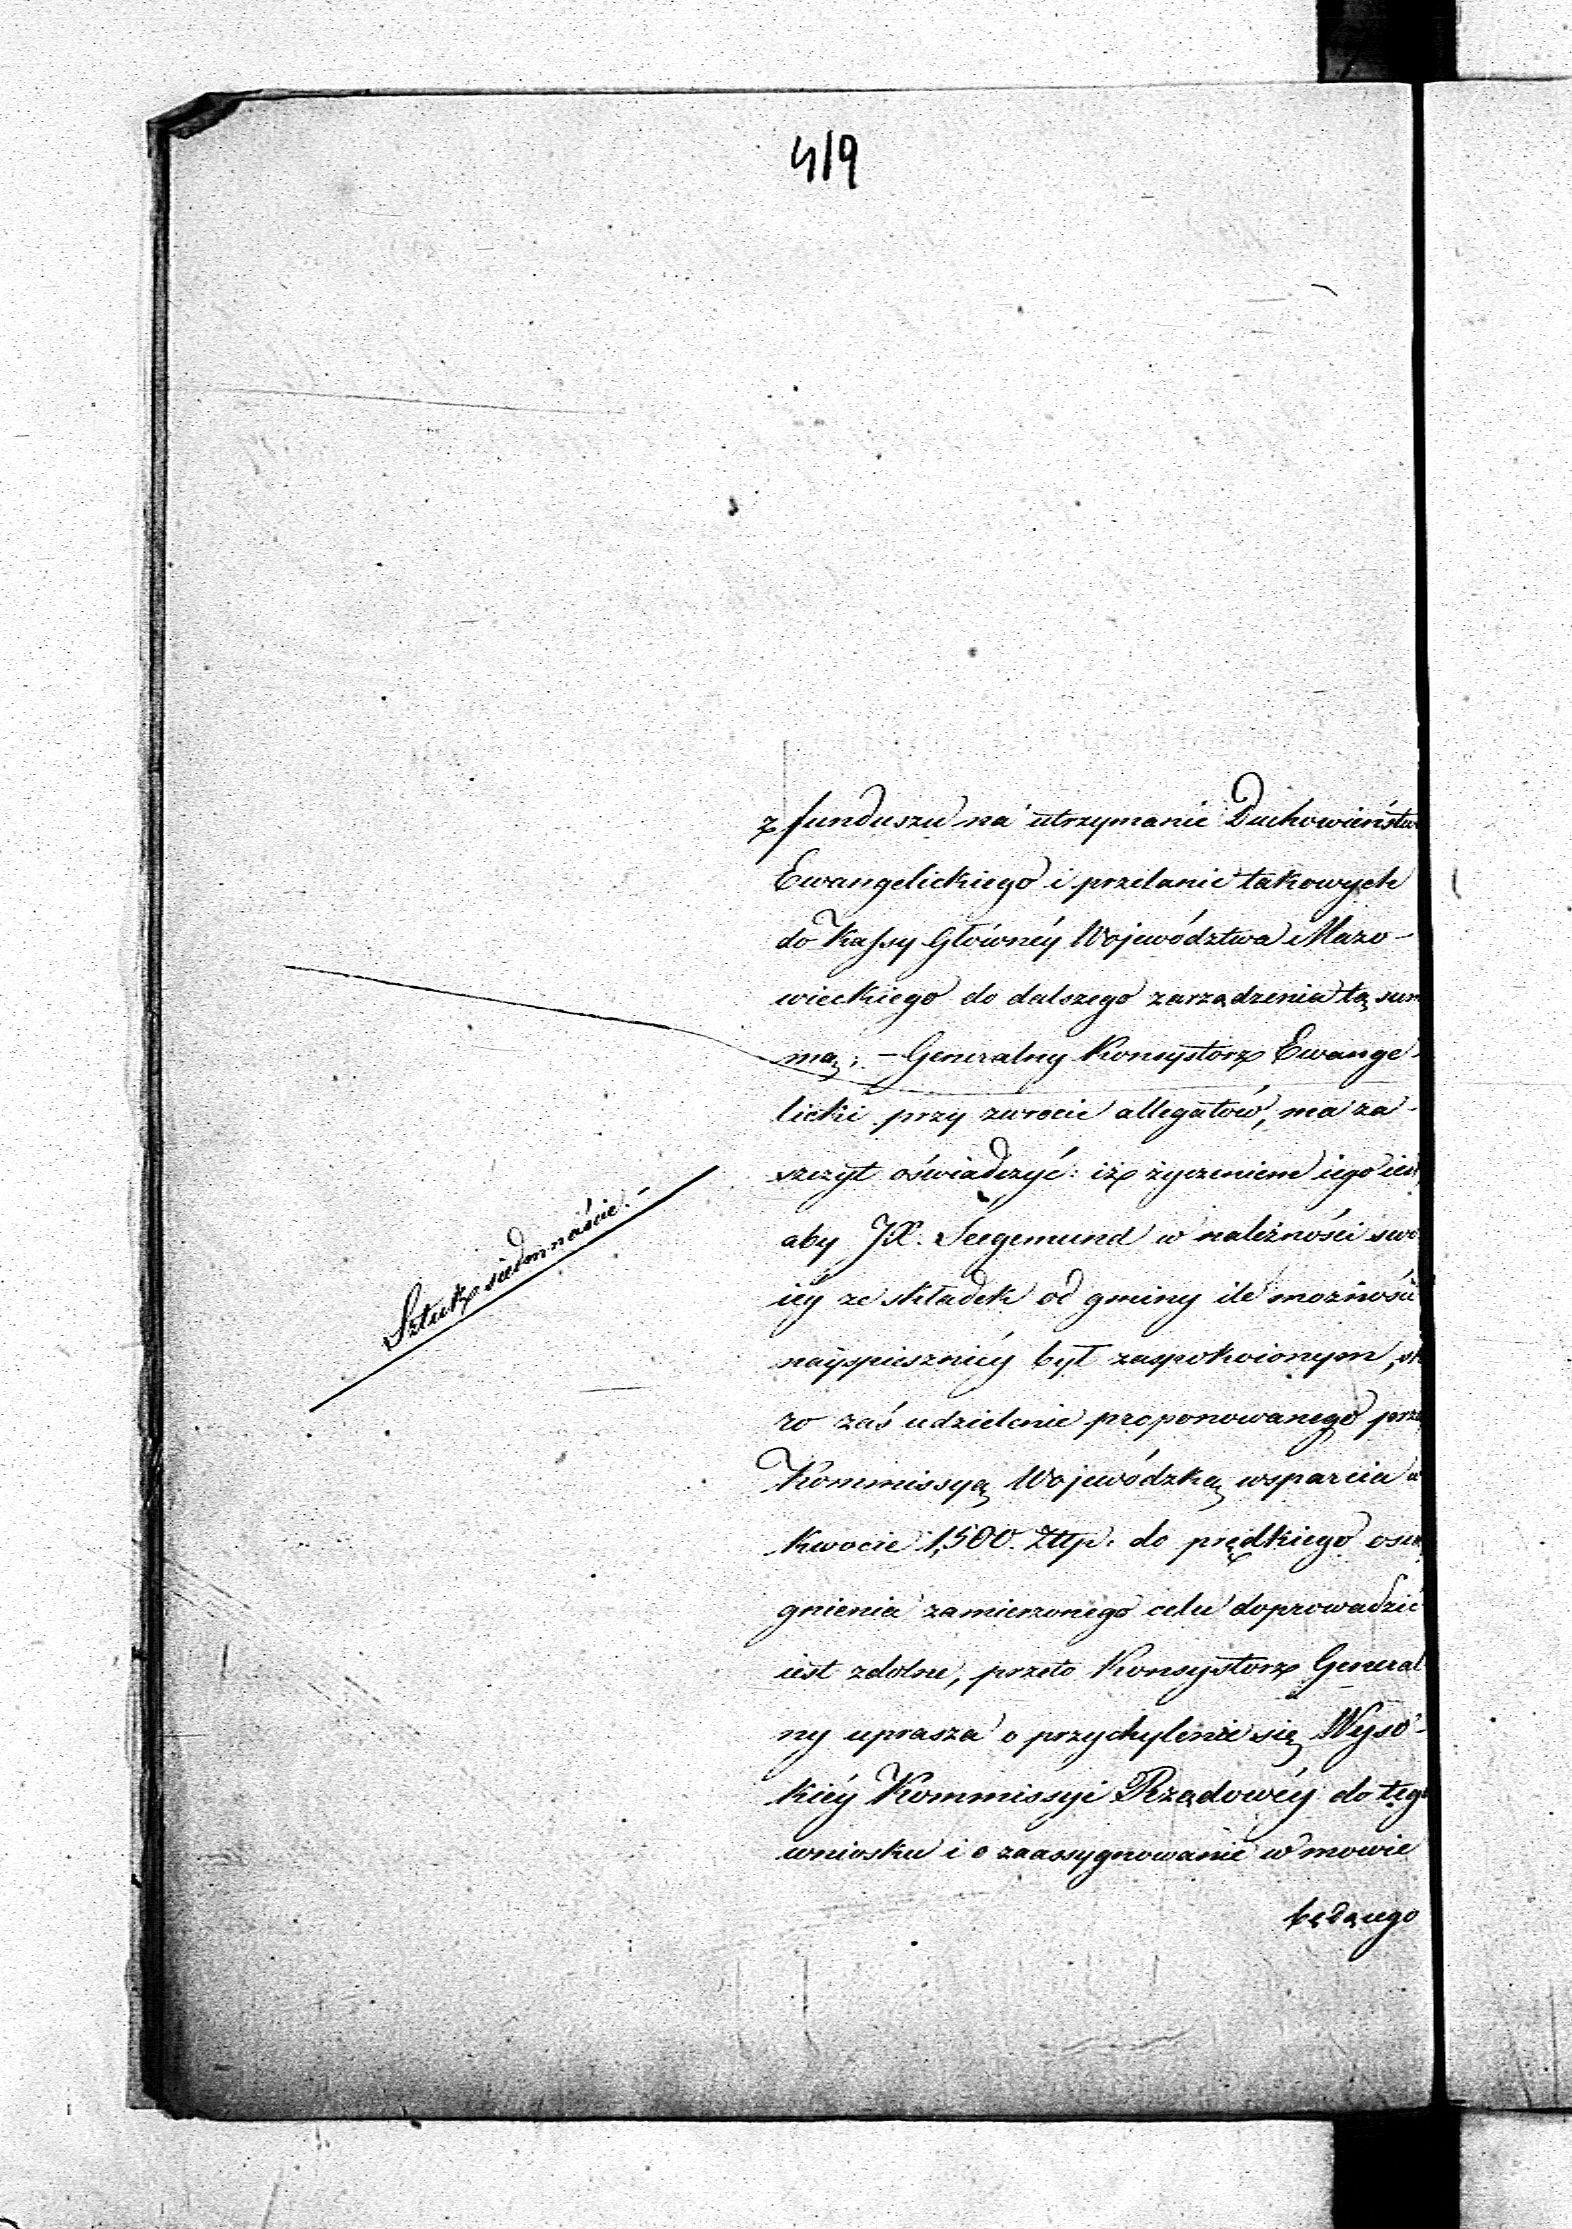 419
z funduszu na utrzymanie Duchowieństw
Ewangelickiego i przelanie takowych
do Kassy Główney Województwa Mazo-
wieckiego do dalszego zarządzenia tą sum
mą; - Generalny Konsystorz Ewange-
licki przy zwrocie allegatów, ma za-
szczyt oświadczyć: iż życzeniem iego iest
aby JX. Seegemund w należności swo
iéy ze składek od gminy ile możności
nayspieszniéy był zaspokoionym, sk
ro zaś udzielenie proponowanego prze
Kommissyą Wojewódzką wsparcia w
kwocie 1,500. Złłp. do prędkiego osią
gnienia zamierzonego celu doprowadzić
iest zdolne, przeto Konsystorz General
ny uprasza o przychylenie się Wyso-
kiéy Kommissyi Rządowéy do tego
wniosku i o zaassygnowanie w mowie
będącego
Sztuk siedmnaście.